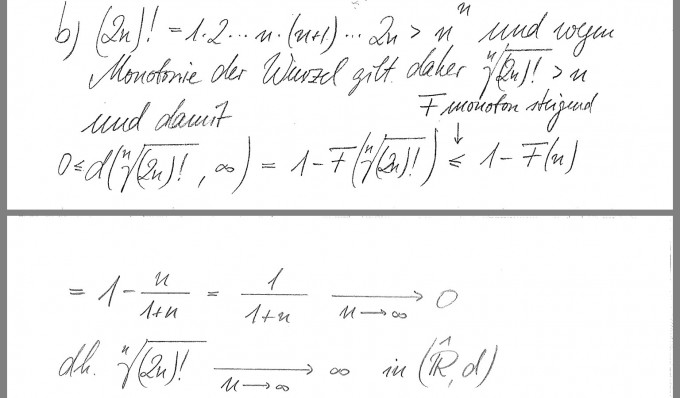 b) (2n)! = 1·2···n·(n+1)···2n > n^n und wegen
Monotonie der Wurzel gilt daher ⁿ√(2n)! > n
F monoton steigend
und damit ↓
0 ≤ d(ⁿ√(2n)!, ∞) = 1 - F(ⁿ√(2n)!) ≤ 1 - F(n)
= 1 - n/(1+n) = 1/(1+n) ⟶ 0 n→∞
dh. ⁿ√(2n)! ⟶ ∞ in (ℝ̂, d) n→∞